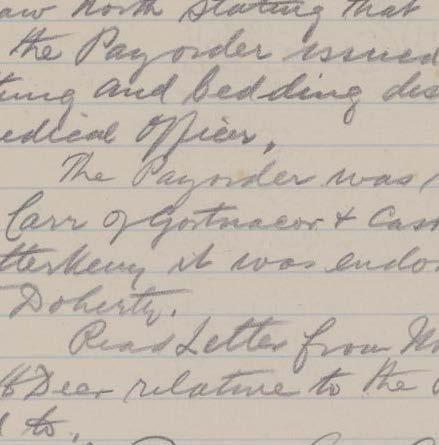 aw North stating that
the Payorder issued
ting and bedding des
edical Officer.
The Payorder was
Carr of Gortnacor & Cas
tterkenny it was endo
Doherty.
Read Letter from M
Deer relative to the
d to,